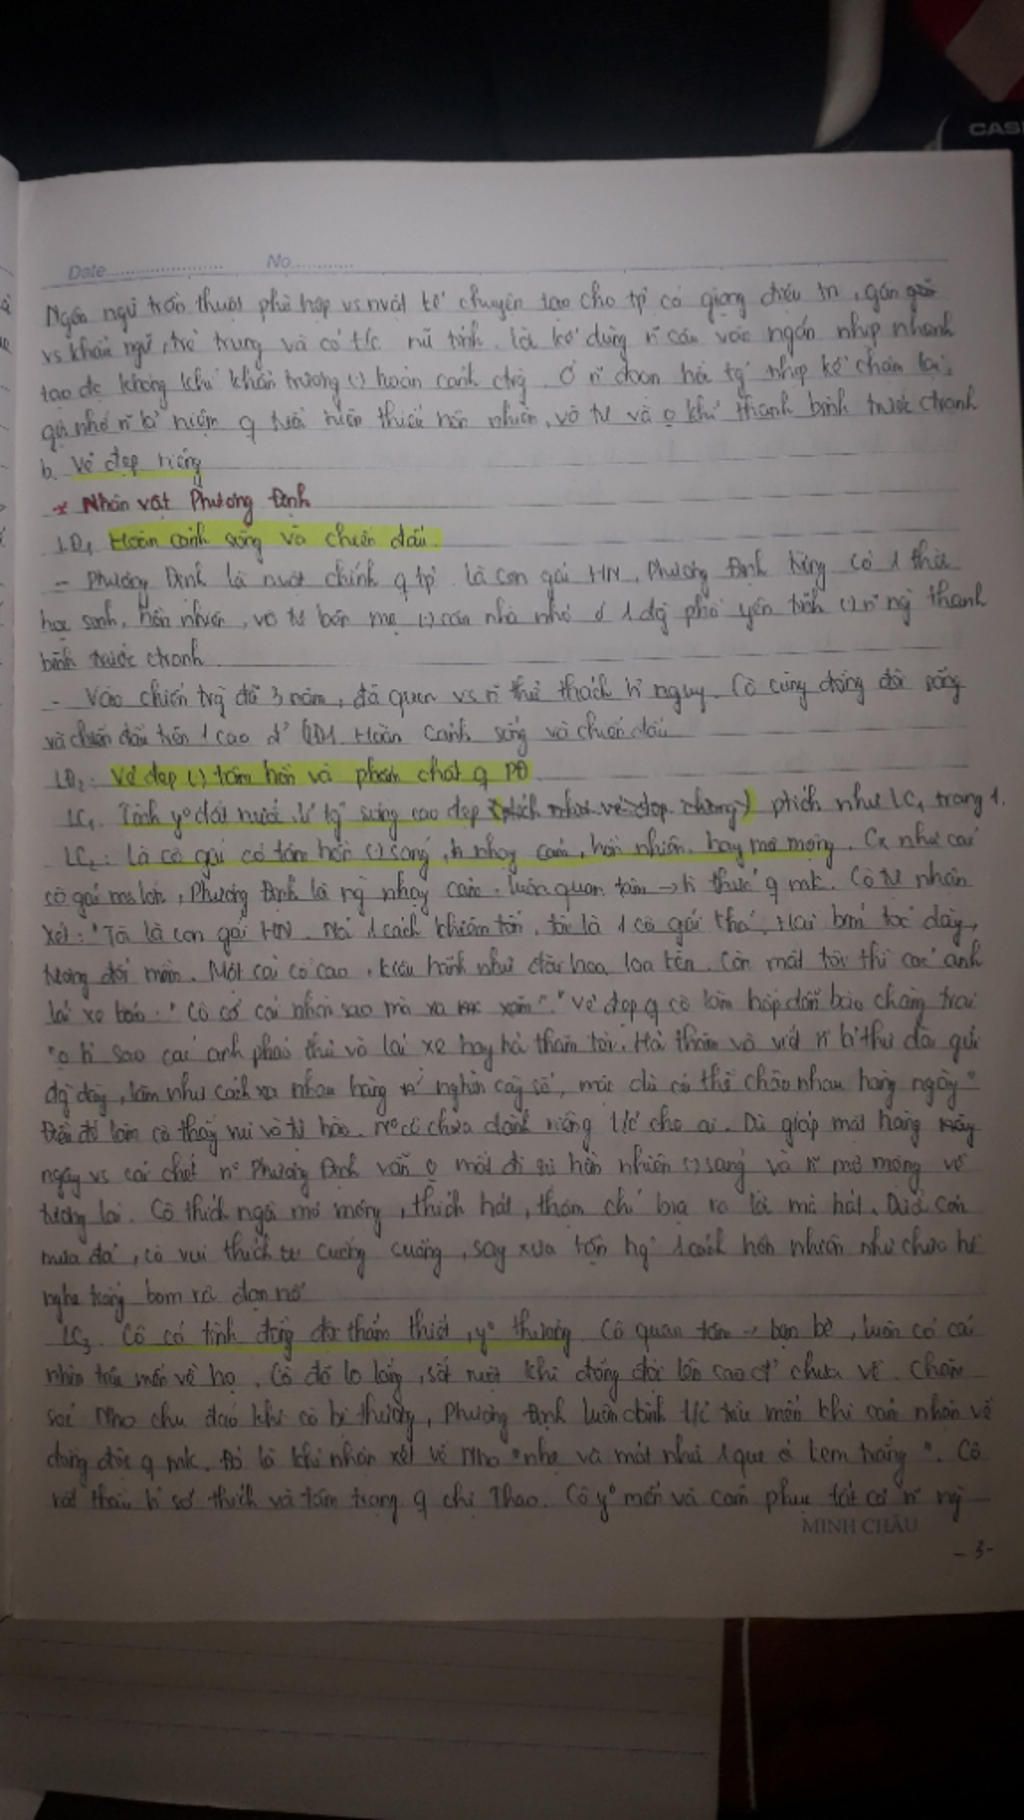 CASI
Date No
Ngôn ngữ trần thuật phù hợp vs nvật kể chuyện tạo cho tp có giọng điệu tn, gần gũi
vs khẩu ngữ, trẻ trung và có t/c nữ tính. Lời kể dùng n~ câu văn ngắn nhịp nhanh
tạo đc không khí khẩn trương () hoàn cảnh ctrg. Ở n~ đoạn hồi tg' nhịp kể chậm lại,
gợi nhớ n~ kỉ niệm q tuổi niên thiếu hồn nhiên, vô tư và o khí thanh bình trước ctranh
b. Vẻ đẹp riêng
* Nhân vật Phương Định
LĐ1 Hoàn cảnh sống và chiến đấu.
- Phương Định là nvật chính q tp là con gái HN, Phương Định từng có 1 thời
học sinh, hồn nhiên, vô tư bên mẹ () căn nhà nhỏ ở 1 đg phố yên tĩnh () n~ ng thanh
bình trước ctranh
- Vào chiến trg đã 3 năm, đã quen vs n~ thử thách h' nguy. Cô cùng đồng đội sống
và chiến đấu trên 1 cao đ' LĐ1 Hoàn cảnh sống và chiến đấu
LĐ2: Vẻ đẹp () tâm hồn và phẩm chất q PĐ
LC1. Tình yº đất nước, lí tg' sống cao đẹp (ptích như vẻ đẹp chung) ptích như LC1 trang 1.
LC2: Là cô gái có tâm hồn () sáng, nhạy cảm, hồn nhiên, hay mơ mộng. Cx như các
cô gái mới lớn, Phương Định là ng nhạy cảm, luôn quan tâm → h' thức q mk. Cô tự nhận
xét: "Tôi là con gái HN. Nói 1 cách khiêm tốn, tôi là 1 cô gái khá. Hai bím tóc dày,
tương đối mềm. Một cái cổ cao, kiêu hãnh như đài hoa loa kèn. Còn mắt tôi thì các anh
lái xe bảo: "Cô có cái nhìn sao mà xa xăm"." Vẻ đẹp q cô làm hấp dẫn bao chàng trai
"o h' sao các anh pháo thủ và lái xe hay hỏi thăm tôi. Hỏi thăm và viết n~ bthư dài gửi
đg dây, làm như cách xa nhau hàng nghìn cây số, mặc dù có thể chào nhau hàng ngày"
Điều đó làm cô thấy vui và tự hào. Nº cô chưa dành riêng t/c cho ai. Dù giáp mặt hàng
ngày vs cái chết nº Phương Định vẫn o mất đi sự hồn nhiên () sáng và n~ mơ mộng về
tương lai. Cô thích ngồi mơ mộng, thích hát, thậm chí bịa ra lời mà hát. Dưới cơn
mưa đá, cô vui thích cuống cuồng, say xưa tận hg' 1 cách hồn nhiên như chưa hề
nghe tiếng bom rơi đạn nổ
LC3. Cô có tình đồng đội thắm thiết, yº thương. Cô quan tâm → bạn bè, luôn có cái
nhìn trìu mến về họ. Cô đã lo lắng, sốt ruột khi đồng đội lên cao đ' chưa về. Chăm
sóc Nho chu đáo khi cô bị thương, Phương Định luôn dành t/c trìu mến khi cảm nhận về
đồng đội q mk. Đó là khi nhận xét về Nho "nhẹ và mát như 1 que kem trắng". Cô
rất hiểu sở thích và tâm trạng q chị Thao. Cô yº mến và cảm phục tất cả n~ ng
MINH CHÂU
- 3 -